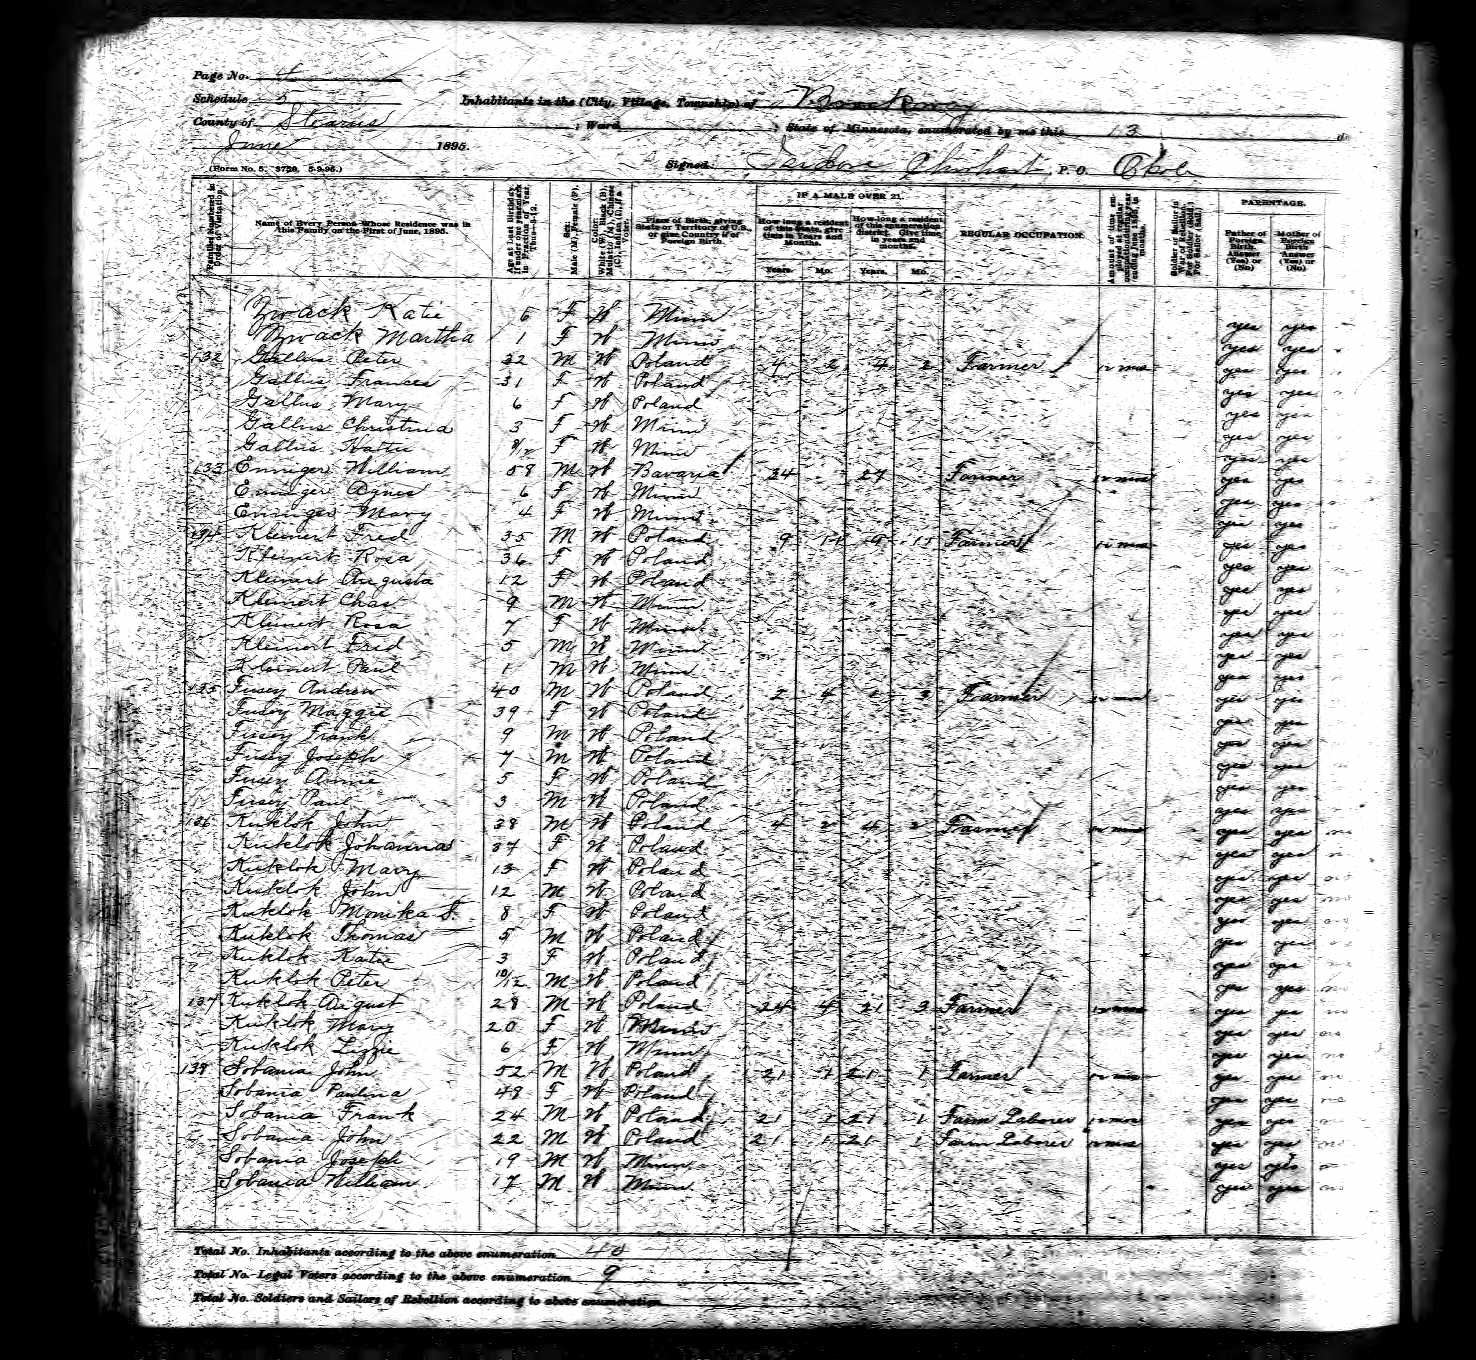 Page No.
Schedule 5 Inhabitants in the (City, Village, Township) of Brockway
County of Stearns ; Ward ; State of Minnesota, enumerated by me this 13 d
June 1895.
(Form No. 5. 3728. 5-9-95.) Signed: Isidore P. O. Opole
Families Numbered in Order of Visitation.
Name of Every Person Whose Residence was in this Family on the First of June, 1895.
Age at Last Birthday.
Sex. Male (M), Female (F).
Color.
Place of Birth, giving State or Territory of U.S., or give Country if of Foreign Birth.
IF A MALE OVER 21.
How long a resident of this State, give time in Years and Months.
How long a resident of this enumeration district. Give time in years and months.
Years. Mo. Years. Mo.
REGULAR OCCUPATION.
PARENTAGE.
Father of Foreign Birth. Answer (Yes) or (No)
Mother of Foreign Birth Answer (Yes) or (No)
Zwack Katie 6 F W Minn yes yes
Zwack Martha 1 F W Minn yes yes
132 Gallus Peter 32 M W Poland 4 2 4 2 Farmer 12 mos yes yes
Gallus Frances 31 F W Poland yes yes
Gallus Mary 6 F W Poland yes yes
Gallus Christina 3 F W Minn yes yes
Gallus F W Minn yes yes
133 Enniger William 58 M W Bavaria 27 Farmer 12 mos yes yes
Enniger Agnes 6 F W Minn yes yes
Enniger Mary 4 F W Minn yes yes
134 Kleinert Fred 35 M W Poland 9 11 9 11 Farmer 12 mos yes yes
Kleinert Rosa 36 F W Poland yes yes
Kleinert Augusta 12 F W Poland yes yes
Kleinert Chas 9 M W Minn yes yes
Kleinert Rosa 7 F W Minn yes yes
Kleinert Fred 5 M W Minn yes yes
Kleinert Paul 1 M W Minn yes yes
135 Fusey Andrew 40 M W Poland 2 4 Farmer 12 mos yes yes
Fusey Maggie 39 F W Poland yes yes
Fusey Frank 9 M W Poland yes yes
Fusey Joseph 7 M W Poland yes yes
Fusey Annie 5 F W Poland yes yes
Fusey Paul 3 M W Poland yes yes
136 Kuklok John 38 M W Poland 4 2 4 2 Farmer 12 mos yes yes
Kuklok Johannas 37 F W Poland yes yes
Kuklok Mary 13 F W Poland yes yes
Kuklok John 12 M W Poland yes yes
Kuklok Monika F. 8 F W Poland yes yes
Kuklok Thomas 5 M W Poland yes yes
Kuklok Katie 3 F W Poland yes yes
Kuklok Peter 10/12 M W Poland yes yes
137 Kuklok August 28 M W Poland 24 4 21 3 Farmer 12 mos yes yes
Kuklok Mary 20 F W Minn yes yes
Kuklok Lizzie 6 F W Minn yes yes
138 Sobania John 52 M W Poland 21 1 21 1 Farmer 12 mos yes yes
Sobania Paulina 48 F W Poland yes yes
Sobania Frank 24 M W Poland 21 1 21 1 Farm Laborer 12 mos yes yes
Sobania John 22 M W Poland 21 1 21 1 Farm Laborer 12 mos yes yes
Sobania Joseph 19 M W Minn yes yes
Sobania William 17 M W Minn yes yes
Total No. Inhabitants according to the above enumeration 40
Total No. Legal Voters according to the above enumeration 9
Total No. Soldiers and Sailors of Rebellion according to above enumeration